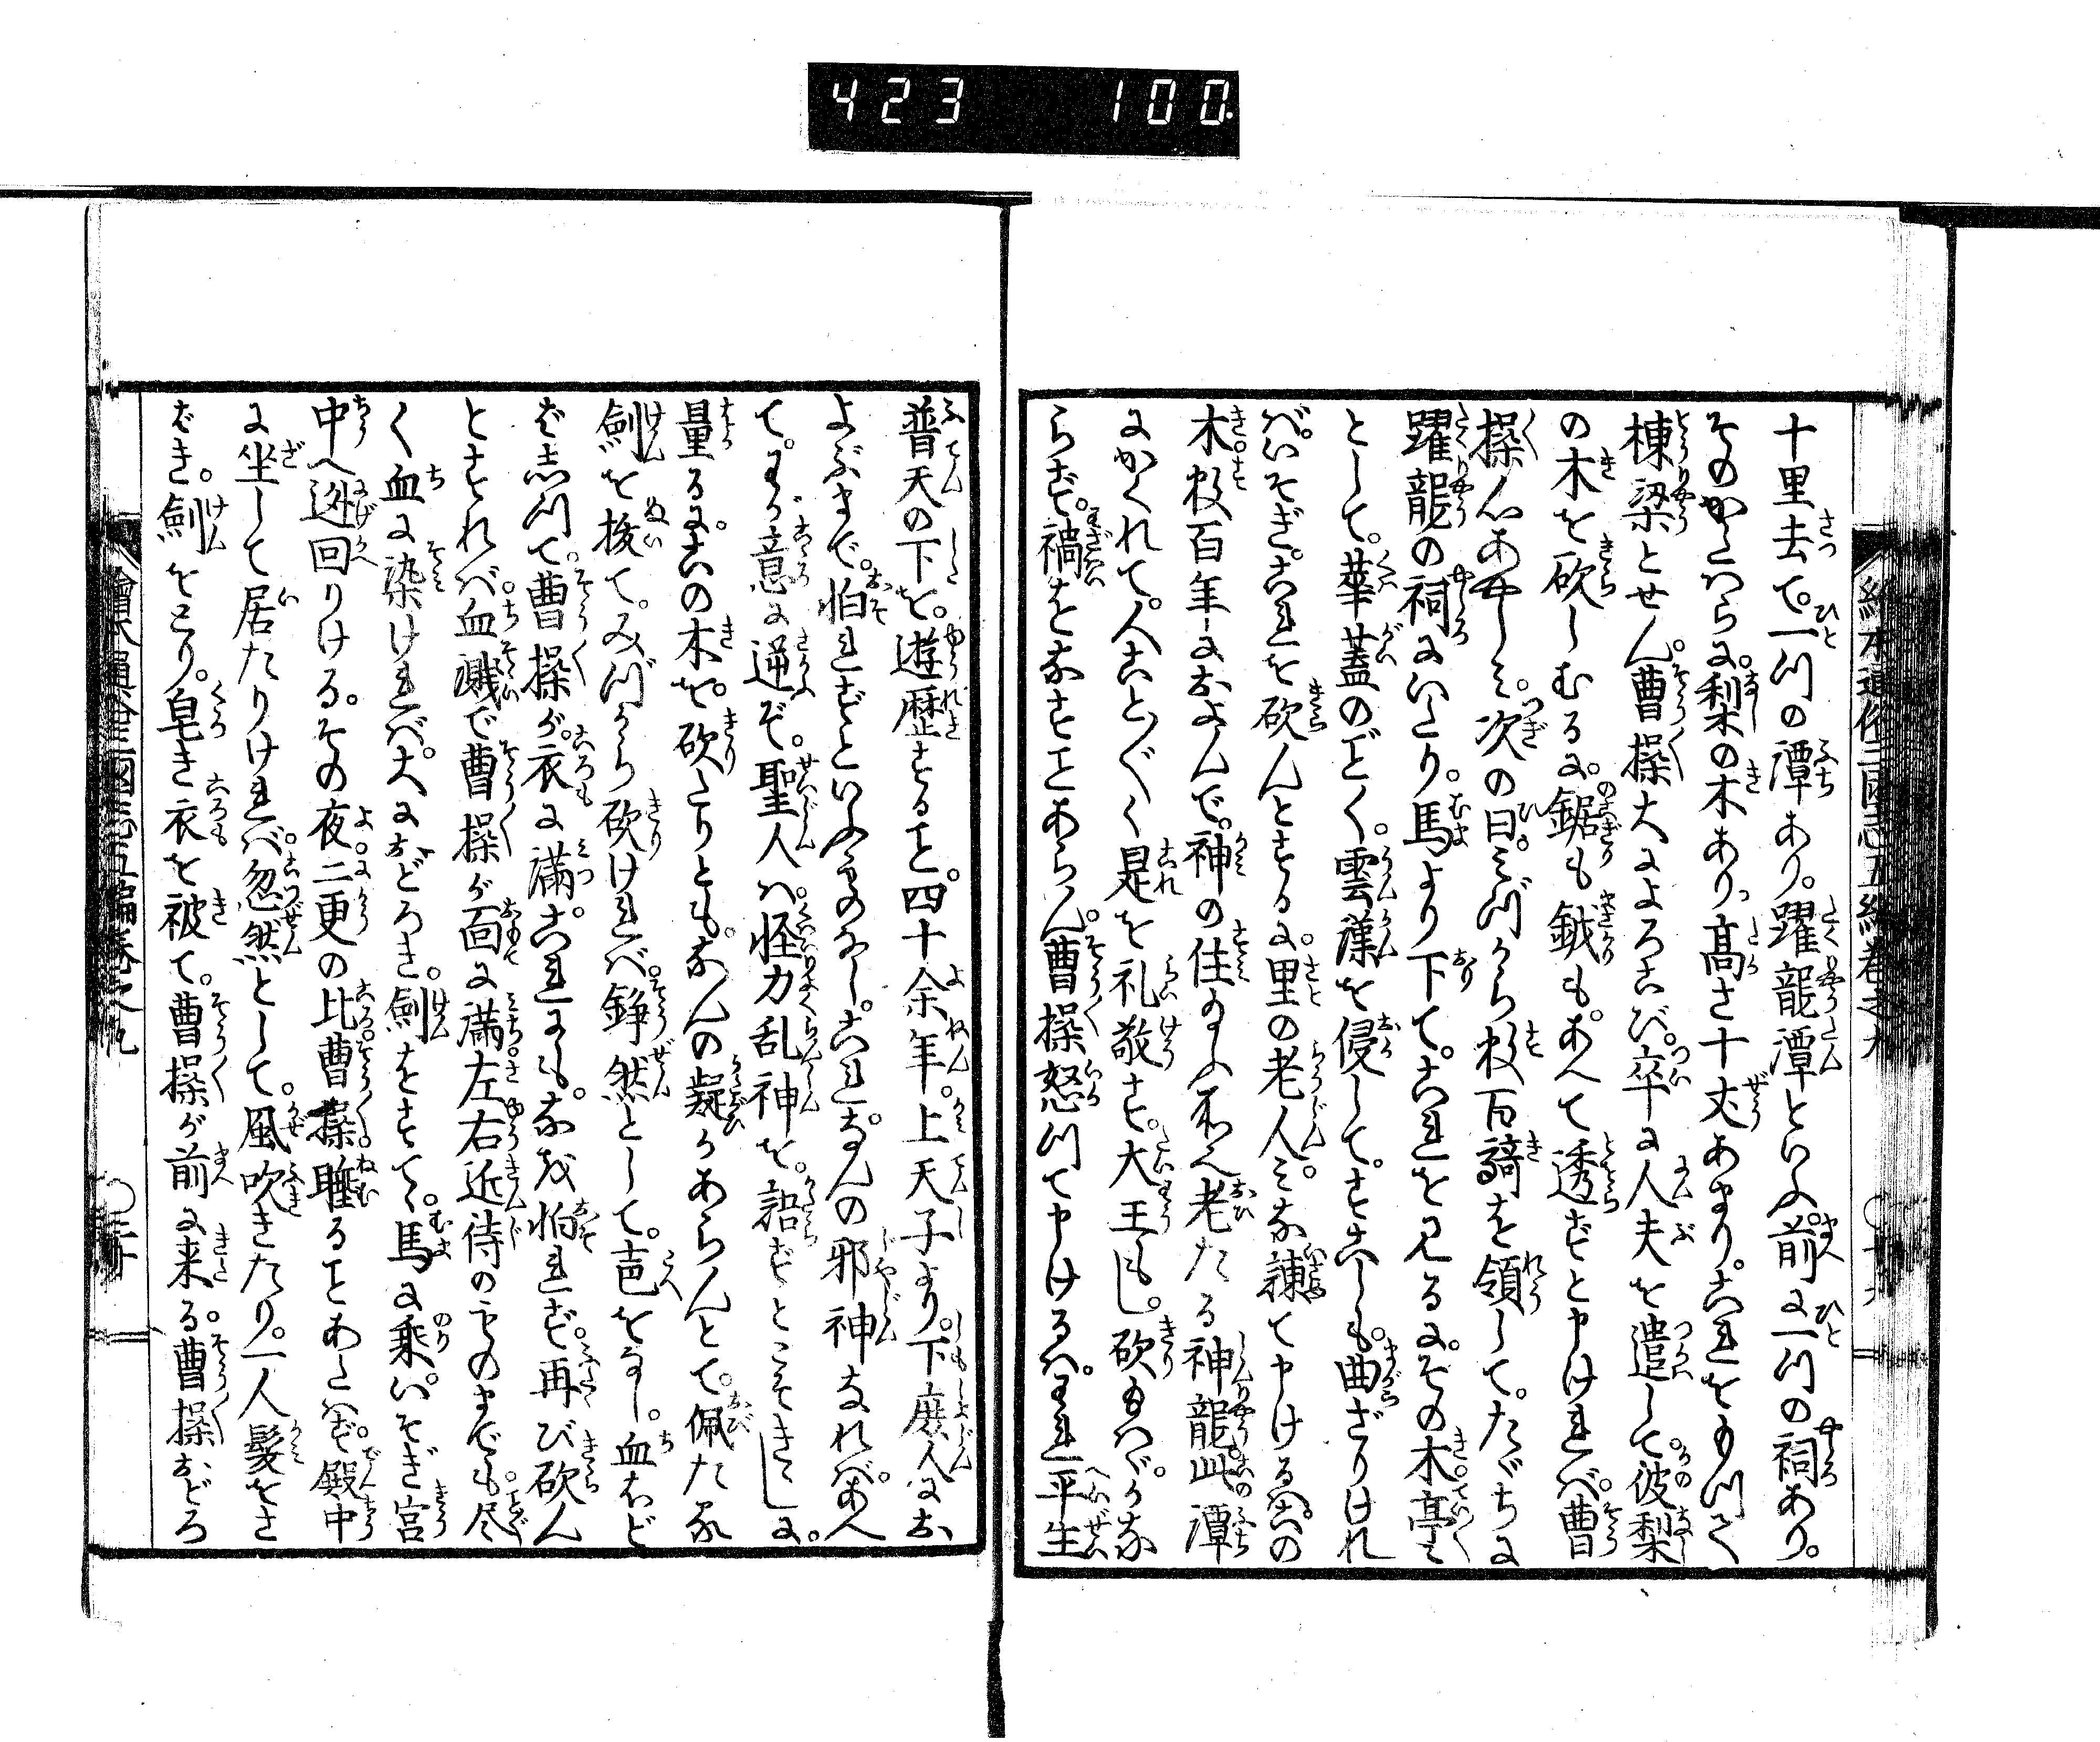 423 100
絵本通俗三国志五編巻之九
十里去て。一つの潭あり。躍龍潭といふ。前に一つの祠あり。
そのかたはらに。梨の木あり。高さ十丈あまり。これをもつて
棟梁とせん。曹操大によろこび。卒に人夫を遣して。彼梨
の木を砍しむるに。鋸も鉞も。あへて透ずと申ければ。曹
操心あやしみ。次の日。みづから数百騎を領して。たゞちに
躍龍の祠にいたり。馬より下て。これを見るに。その木亭々
として。華蓋のごとく。雲漢を侵して。すこしも。曲ざりけれ
ば。いそぎ。これを砍んとするに。里の老人。みな諫て申けるは。この
木数百年におよんで。神の住給ふ所へ。老たる神龍。此潭
にかくれて。人ことごとく是を礼敬す。大王もし。砍給はゞ。かな
らず。禍をなすことあらん。曹操怒つて申けるは。われ平生
普天の下を。遊歴すること。四十余年。上天子より。下庶人にお
よぶまで。怕れずといふものなし。これ。なんの邪神なれば。あへ
て。わが意に逆ぞ。聖人は怪力乱神を。語ずとこそきゝしに。
量るに。この木を。砍たりとも。なんの疑かあらんとて。佩たる
剣を抜て。みづから砍ければ。錚然として。声をなし。血ほど
ばしつて。曹操が衣に満。これにも。なほ怕れず。再び砍ん
とすれば。血濺で曹操が面に満。左右近侍のものまでも。尽
く血に染ければ。大におどろき。剣をすてゝ。馬に乗。いそぎ宮
中へ迯回りける。その夜二更の比。曹操睡ることあたはず。殿中
に坐して居たりければ。忽然として。風吹きたり。一人髪をさ
ばき。剣をとり。皂き衣を被て。曹操が前に来る。曹操おどろ
絵本通俗三国志五編巻之九 〇二十